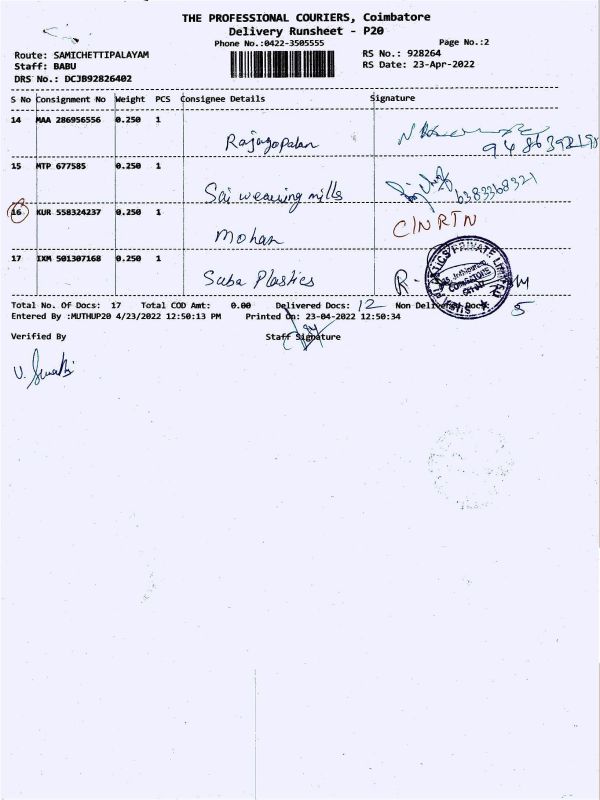 THE PROFESSIONAL COURIERS, Coimbatore
Delivery Runsheet - P20
Phone No.:0422-3505555
Page No.:2
Route: SAMICHETTIPALAYAM
RS No.: 928264
Staff: BABU
RS Date: 23-Apr-2022
DRS No.: DCJB92826402
S No Consignment No Weight PCS Consignee Details Signature
14 MAA 286956556 0.250 1
Rajagopalan
15 MTP 677585 0.250 1
Sai weaving mills 6383368321
16 KUR 558324237 0.250 1
Mohan C/N RTN
17 IXM 501307168 0.250 1
Suba Plastics
Total No. Of Docs: 17 Total COD Amt: 0.00 Delivered Docs: 12 Non Delivered Docs: 5
Entered By :MUTHUP20 4/23/2022 12:50:13 PM Printed On: 23-04-2022 12:50:34
Verified By Staff Signature